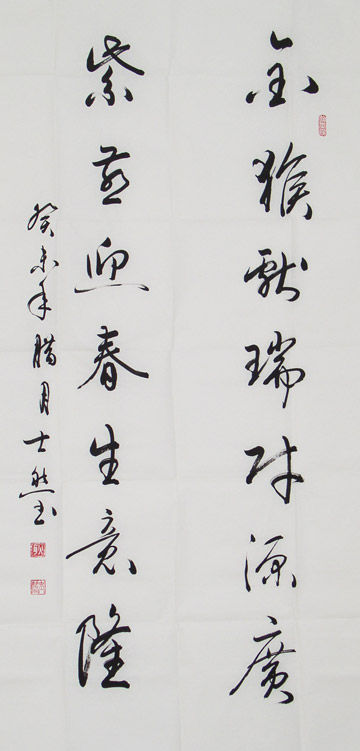 金猴献瑞财源廣
紫燕迎春生意隆
癸未年腊月士然书